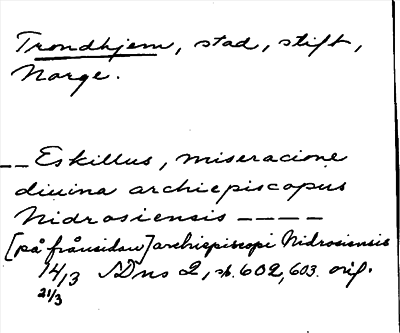 Trondhjem, stad, stift,
Norge.
-- Eskillus, miseracione
diuina archiepiscopus
Nidrosiensis ----
[på frånsidan] archiepiscopi Nidrosiensis
14/3 SD ns 2, s. 602, 603. orig.
21/3